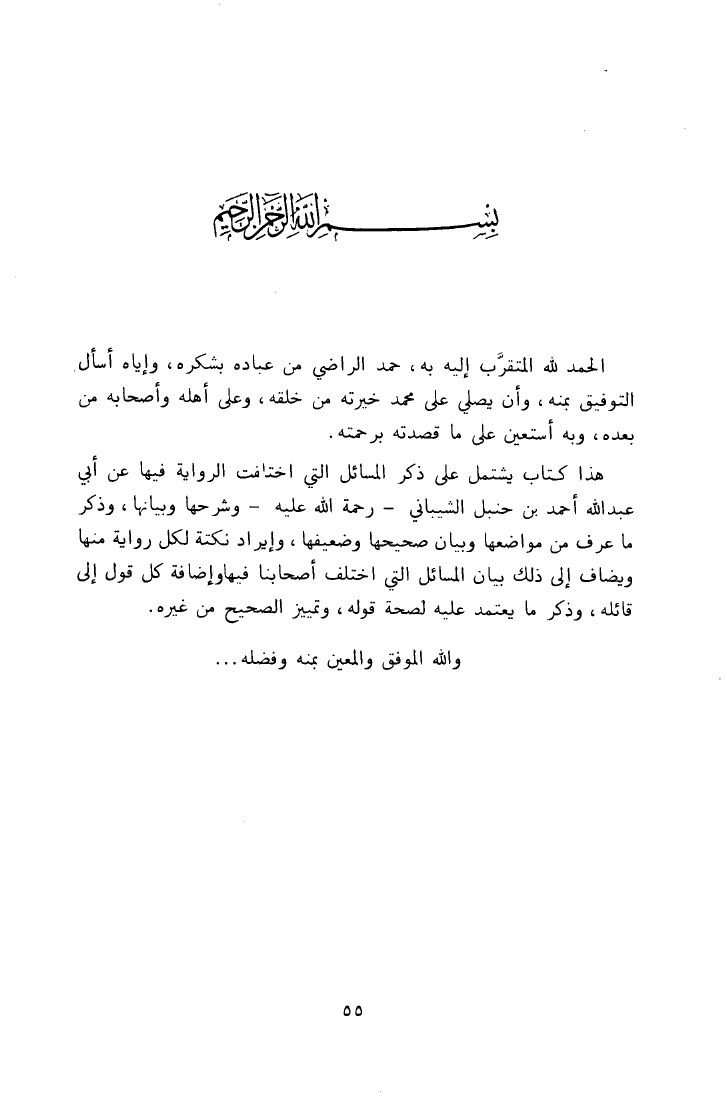 بسم الله الرحمن الرحيم
الحمد لله المتقرَّب إليه به، حمد الراضي من عباده بشكره، وإياه أسأل
التوفيق بمنه، وأن يصلي على محمد خيرته من خلقه، وعلى أهله وأصحابه من
بعده، وبه أستعين على ما قصدته برحمته.
هذا كتاب يشتمل على ذكر المسائل التي اختلفت الرواية فيها عن أبي
عبدالله أحمد بن حنبل الشيباني - رحمة الله عليه - وشرحها وبيانها، وذكر
ما عرف من مواضعها وبيان صحيحها وضعيفها، وإيراد نكتة لكل رواية منها
ويضاف إلى ذلك بيان المسائل التي اختلف أصحابنا فيهاوإضافة كل قول إلى
قائله، وذكر ما يعتمد عليه لصحة قوله، وتمييز الصحيح من غيره.
والله الموفق والمعين بمنه وفضله...
٥٥